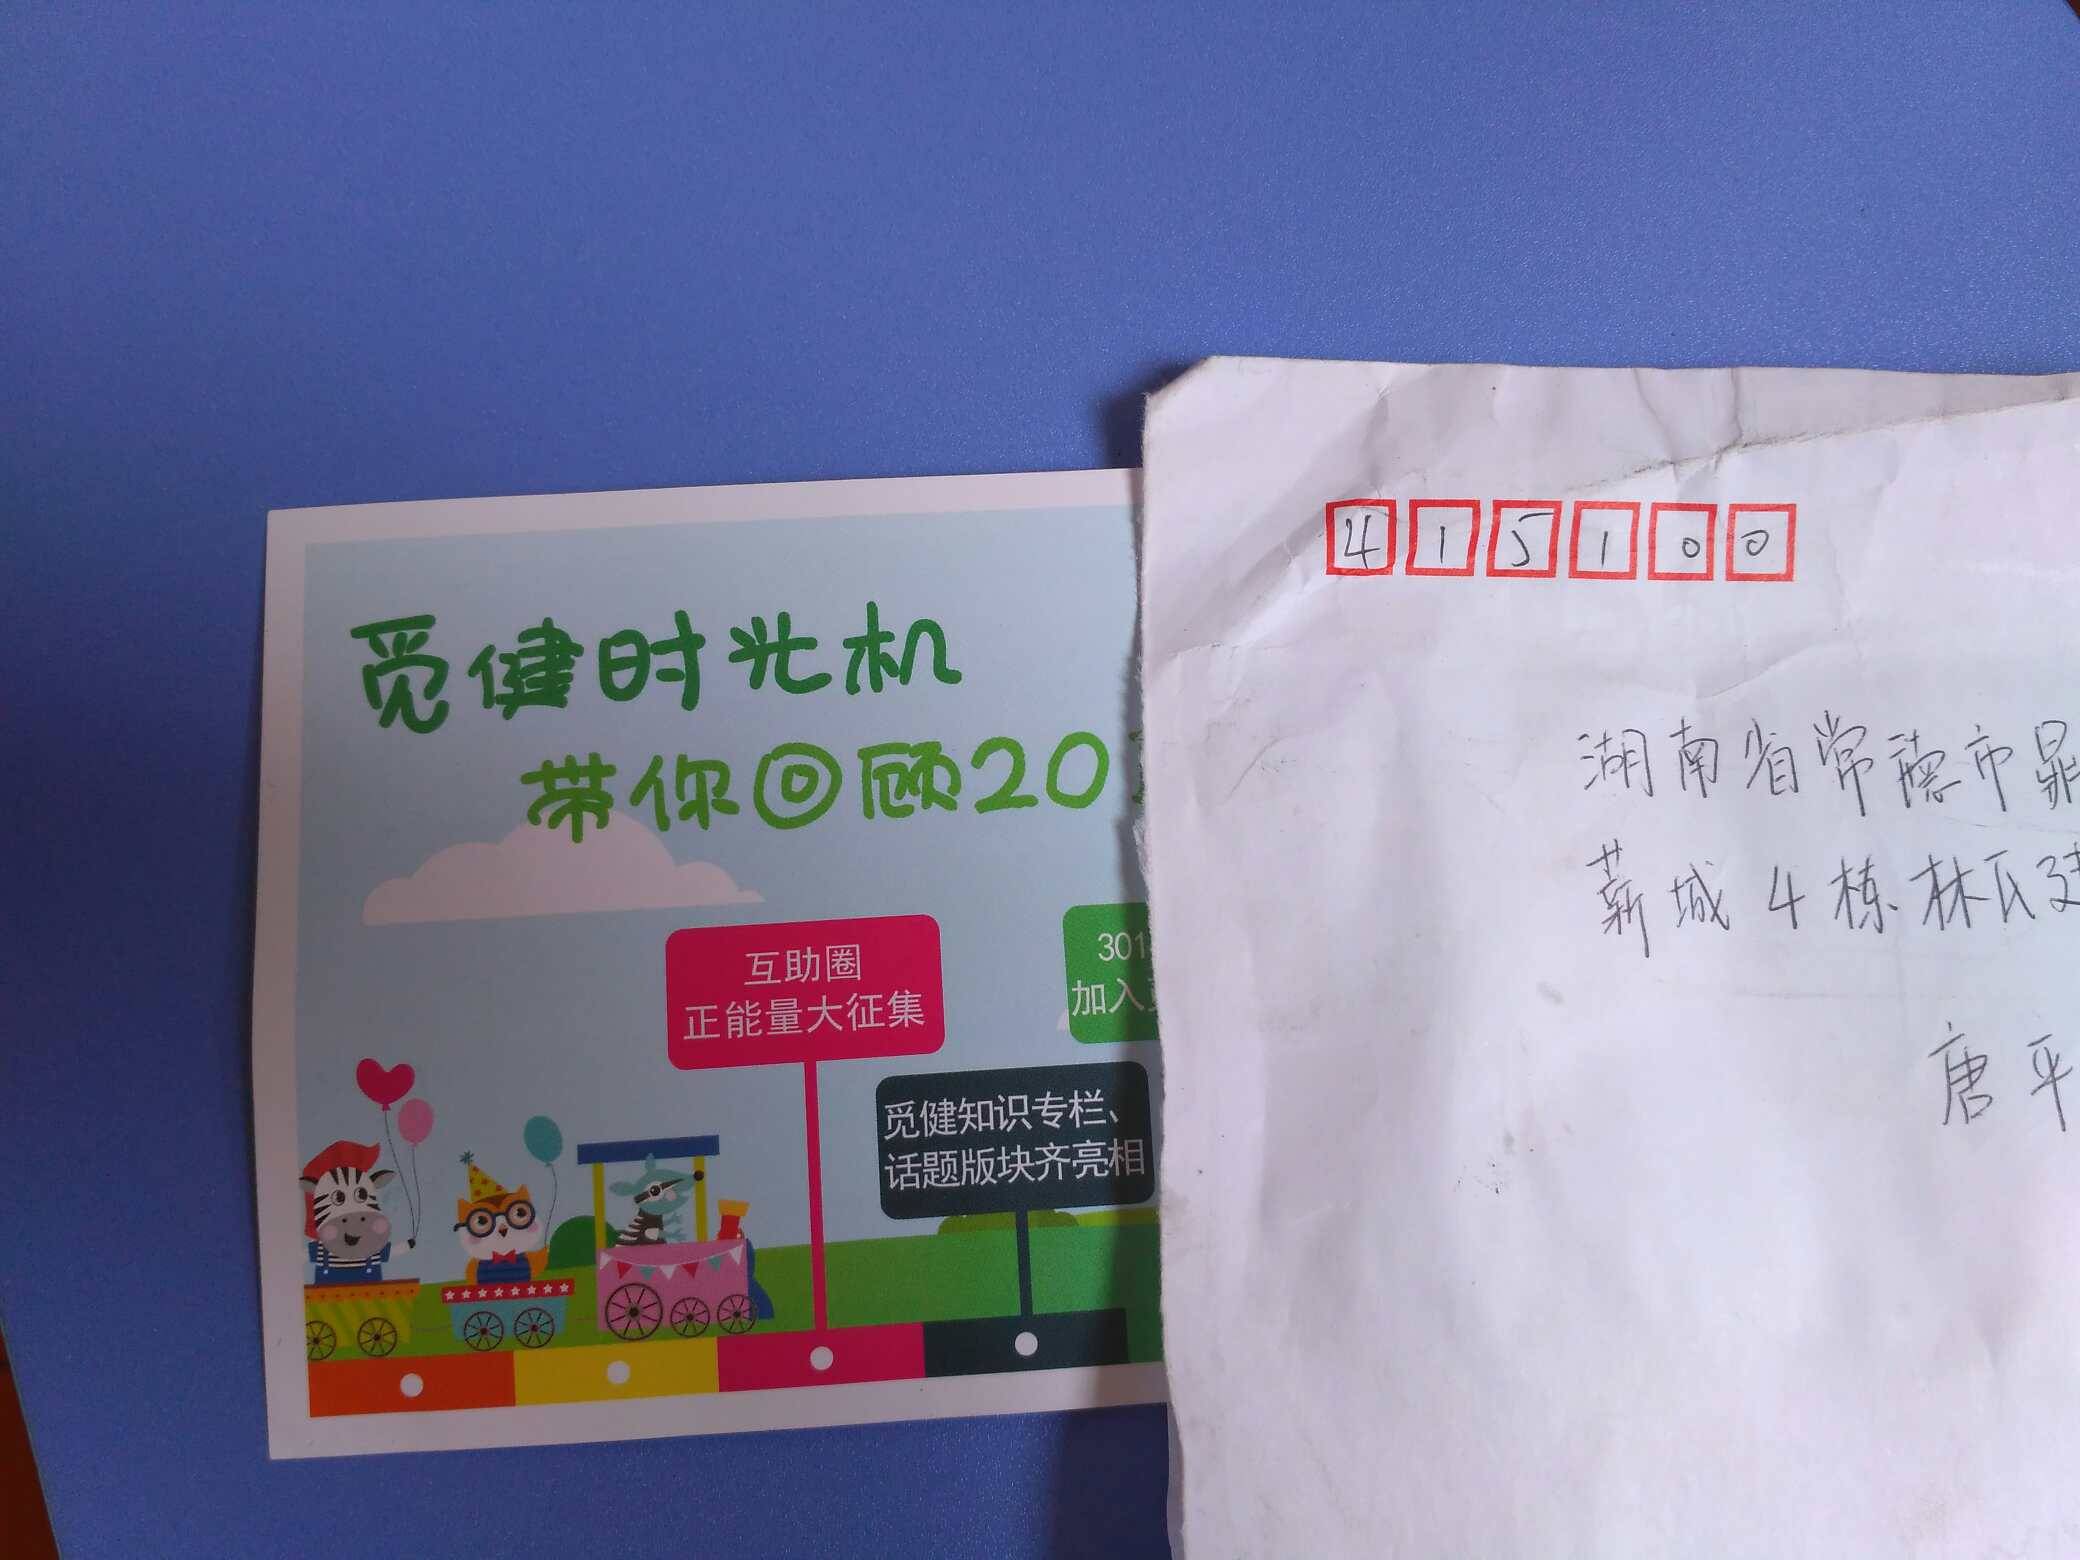 觅健时光机
带你回顾20
互助圈
正能量大征集
301
加入
觅健知识专栏、
话题版块齐亮相
415100
湖南省常德市鼎
薪城4栋林瓦建
唐平